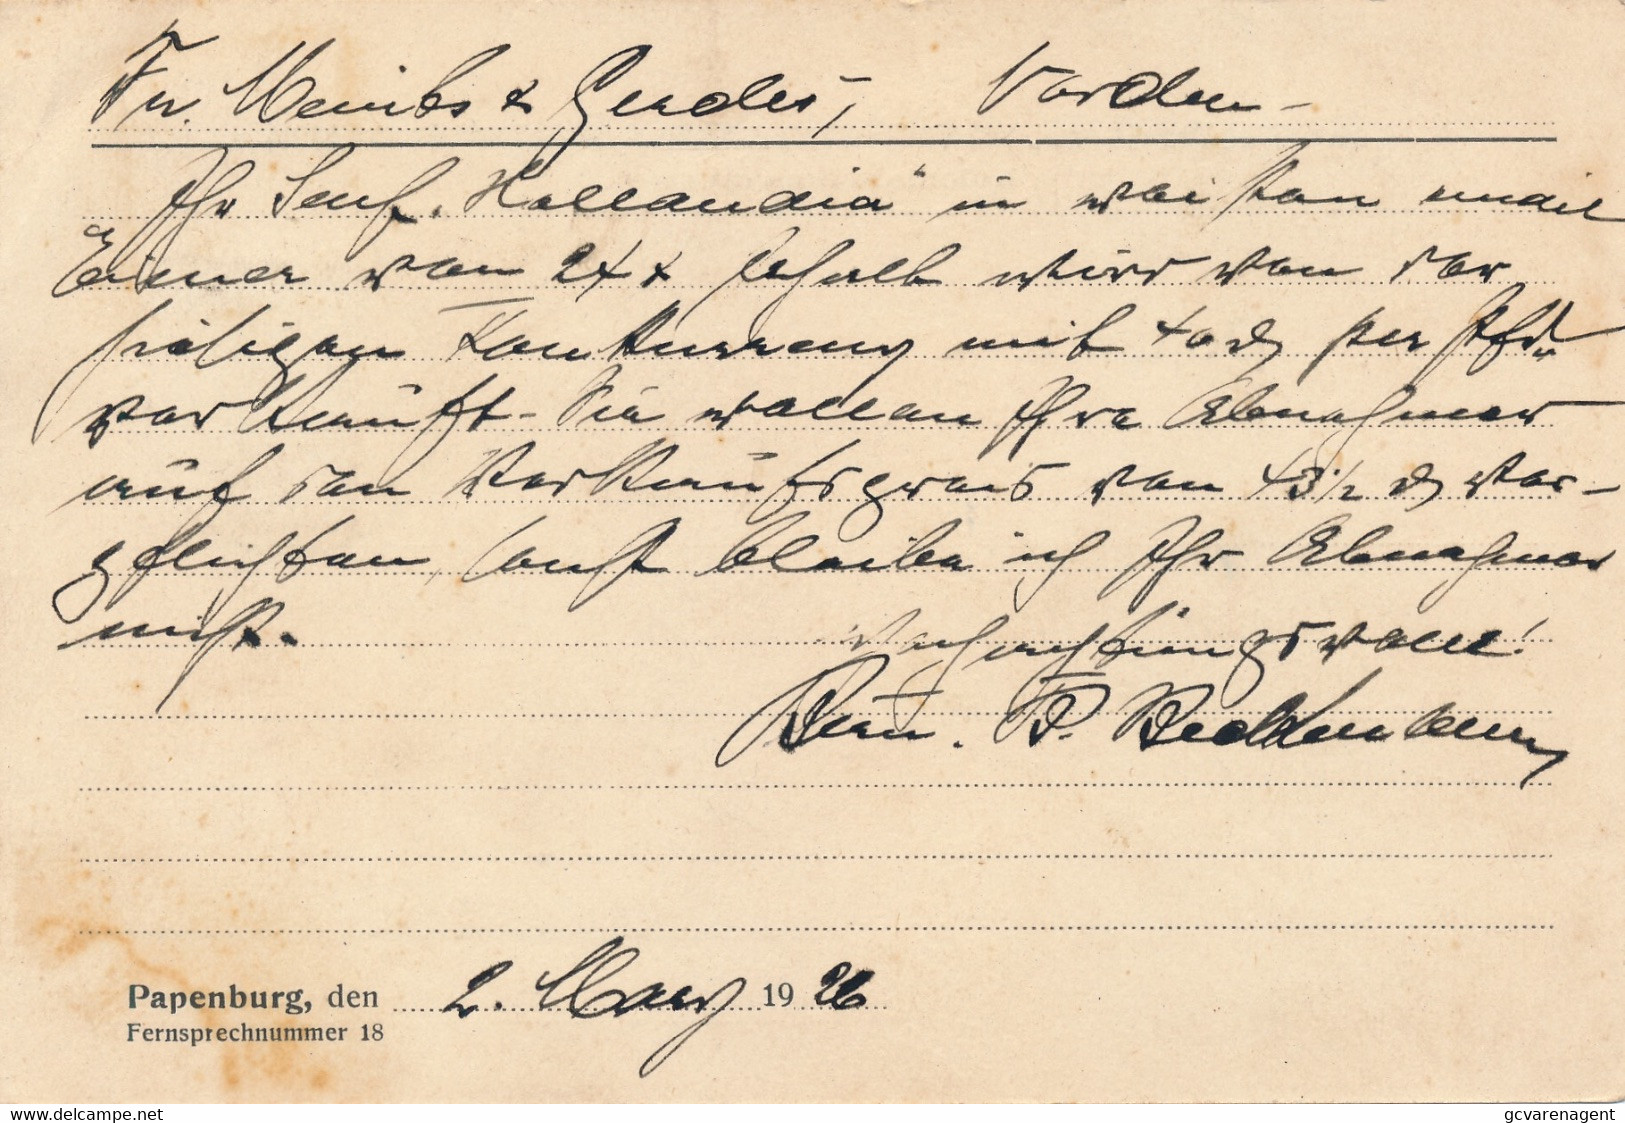 Fr. Meinbs & Gerdes, Norden –
Ihr Senf „Hollandia" in weissen email
Eimer von 24 ℔ Inhalt wird von der
hiesigen Konkurrenz mit 40 ₰ per Pfd.
verkauft. Sie wollen Ihre Abnehmer
auf den Verkaufspreis von 43½ ₰ ver-
pflichten, sonst bleibe ich Ihr Abnehmer
nicht.
Hochachtungsvoll!
Bern. D. Beckmann
Papenburg, den 2. März 1926
Fernsprechnummer 18
delcampe.net
gcvarenagent